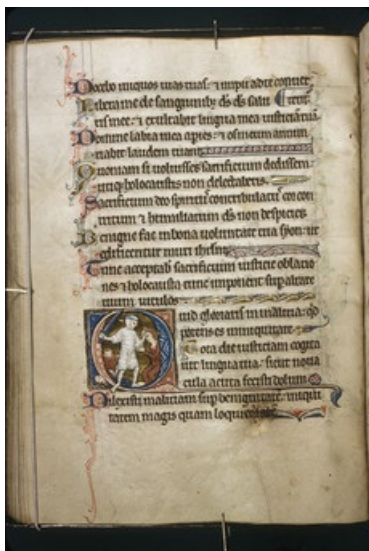 Docebo iniquos uias tuas: & impii ad te conuer
Libera me de sanguinib; ds ds salu tent᷑
tis mee: & exultabit lingua mea iusticiā tuā
Domine labia mea apies: & os meum annun
ciabit laudem tuam
Quoniam si uoluisses sacrificium dedissem
utiq; holocaustis non delectaberis.
Sacrificium deo spiritus contribulatus: cor con
tritum & humiliatum ds non despicies
Benigne fac in bona uoluntate tua syon: ut
edificentur muri ihrlm
Tunc acceptab sacrificium iusticie oblatio
nes & holocausta: tunc imponent sup altare
tuum uitulos
Quid gloriaris in malitia: q̇
potens es in iniquitate
Tota die iusticiam cogita
uit lingua tua: sicut noua
cula acuta fecisti dolum
Dilexisti maliciam sup benignitatē: iniqui
tatem magis quam loqui